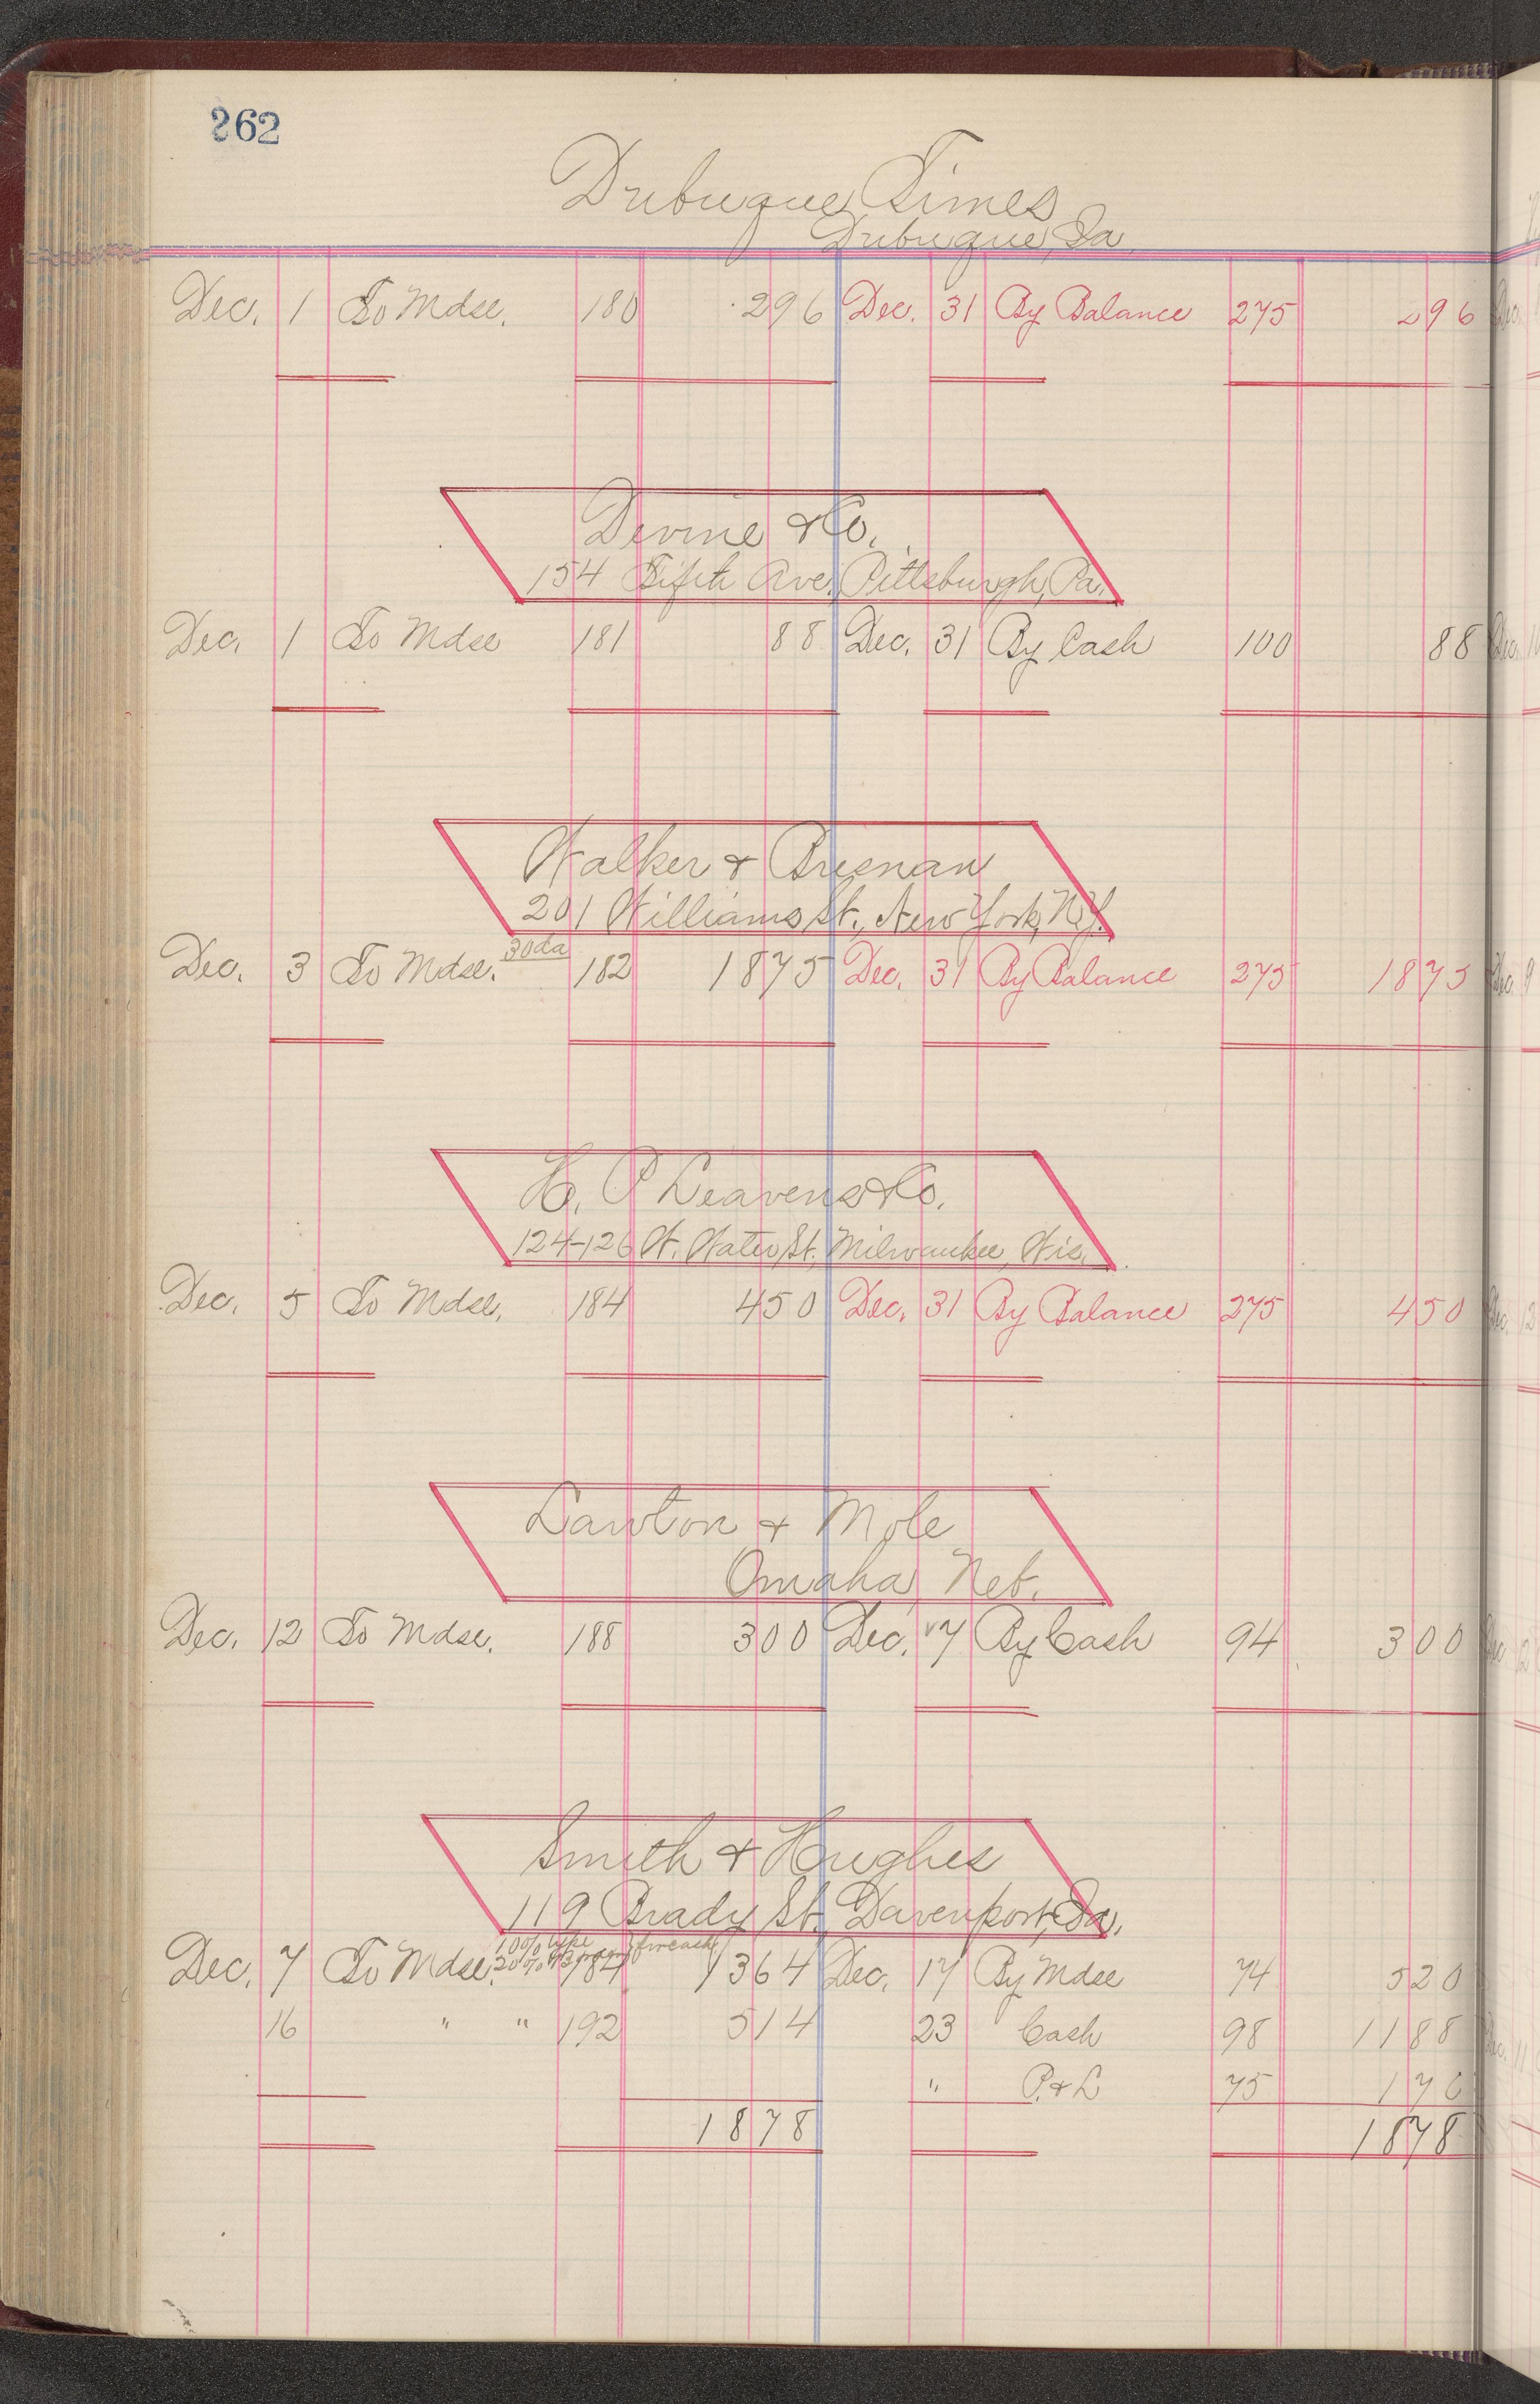 262
Dubuque Times
Dubuque, Ia.
Dec. 1 To Mdse. 180 2 96 Dec. 31 By Balance 275 2 96
Devine & Co.
154 Fifth Ave. Pittsburgh, Pa.
Dec. 1 To Mdse 181 88 Dec. 31 By Cash 100 88
Walker & Bresnan
201 Williams St., New York, N.Y.
Dec. 3 To Mdse. 30da 182 18 75 Dec. 31 By Balance 275 18 75
H. P Leavens & Co.
124-126 W. Water St. Milwaukee, Wis.
Dec. 5 To Mdse. 184 4 50 Dec. 31 By Balance 275 4 50
Lawton & Mole
Omaha, Neb.
Dec. 12 To Mdse. 188 3 00 Dec. 17 By Cash 94 3 00
Smith & Hughes
119 Brady St., Davenport, Ia.
10% type for cash
Dec. 7 To Mdse. 20% 184 13 64 Dec. 17 By Mdse 74 5 20
16 " " 192 5 14 23 Cash 98 11 88
" P. & L 75 1 70
18 78 18 78